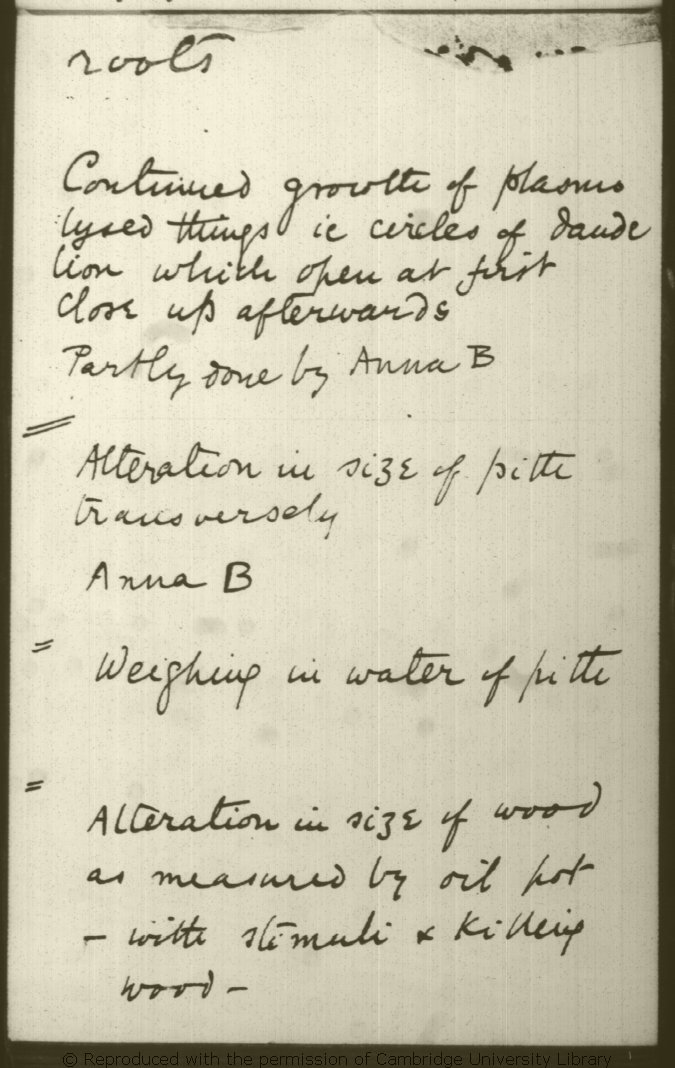 roots
Continued growth of plasmo
lysed things ie circles of dande
lion which open at first
close up afterwards
Partly done by Anna B
Alteration in size of pith
transversely
Anna B
= Weighing in water of pith
= Alteration in size of wood
as measured by oil pot
– with stimuli & killing
wood –
© Reproduced with the permission of Cambridge University Library